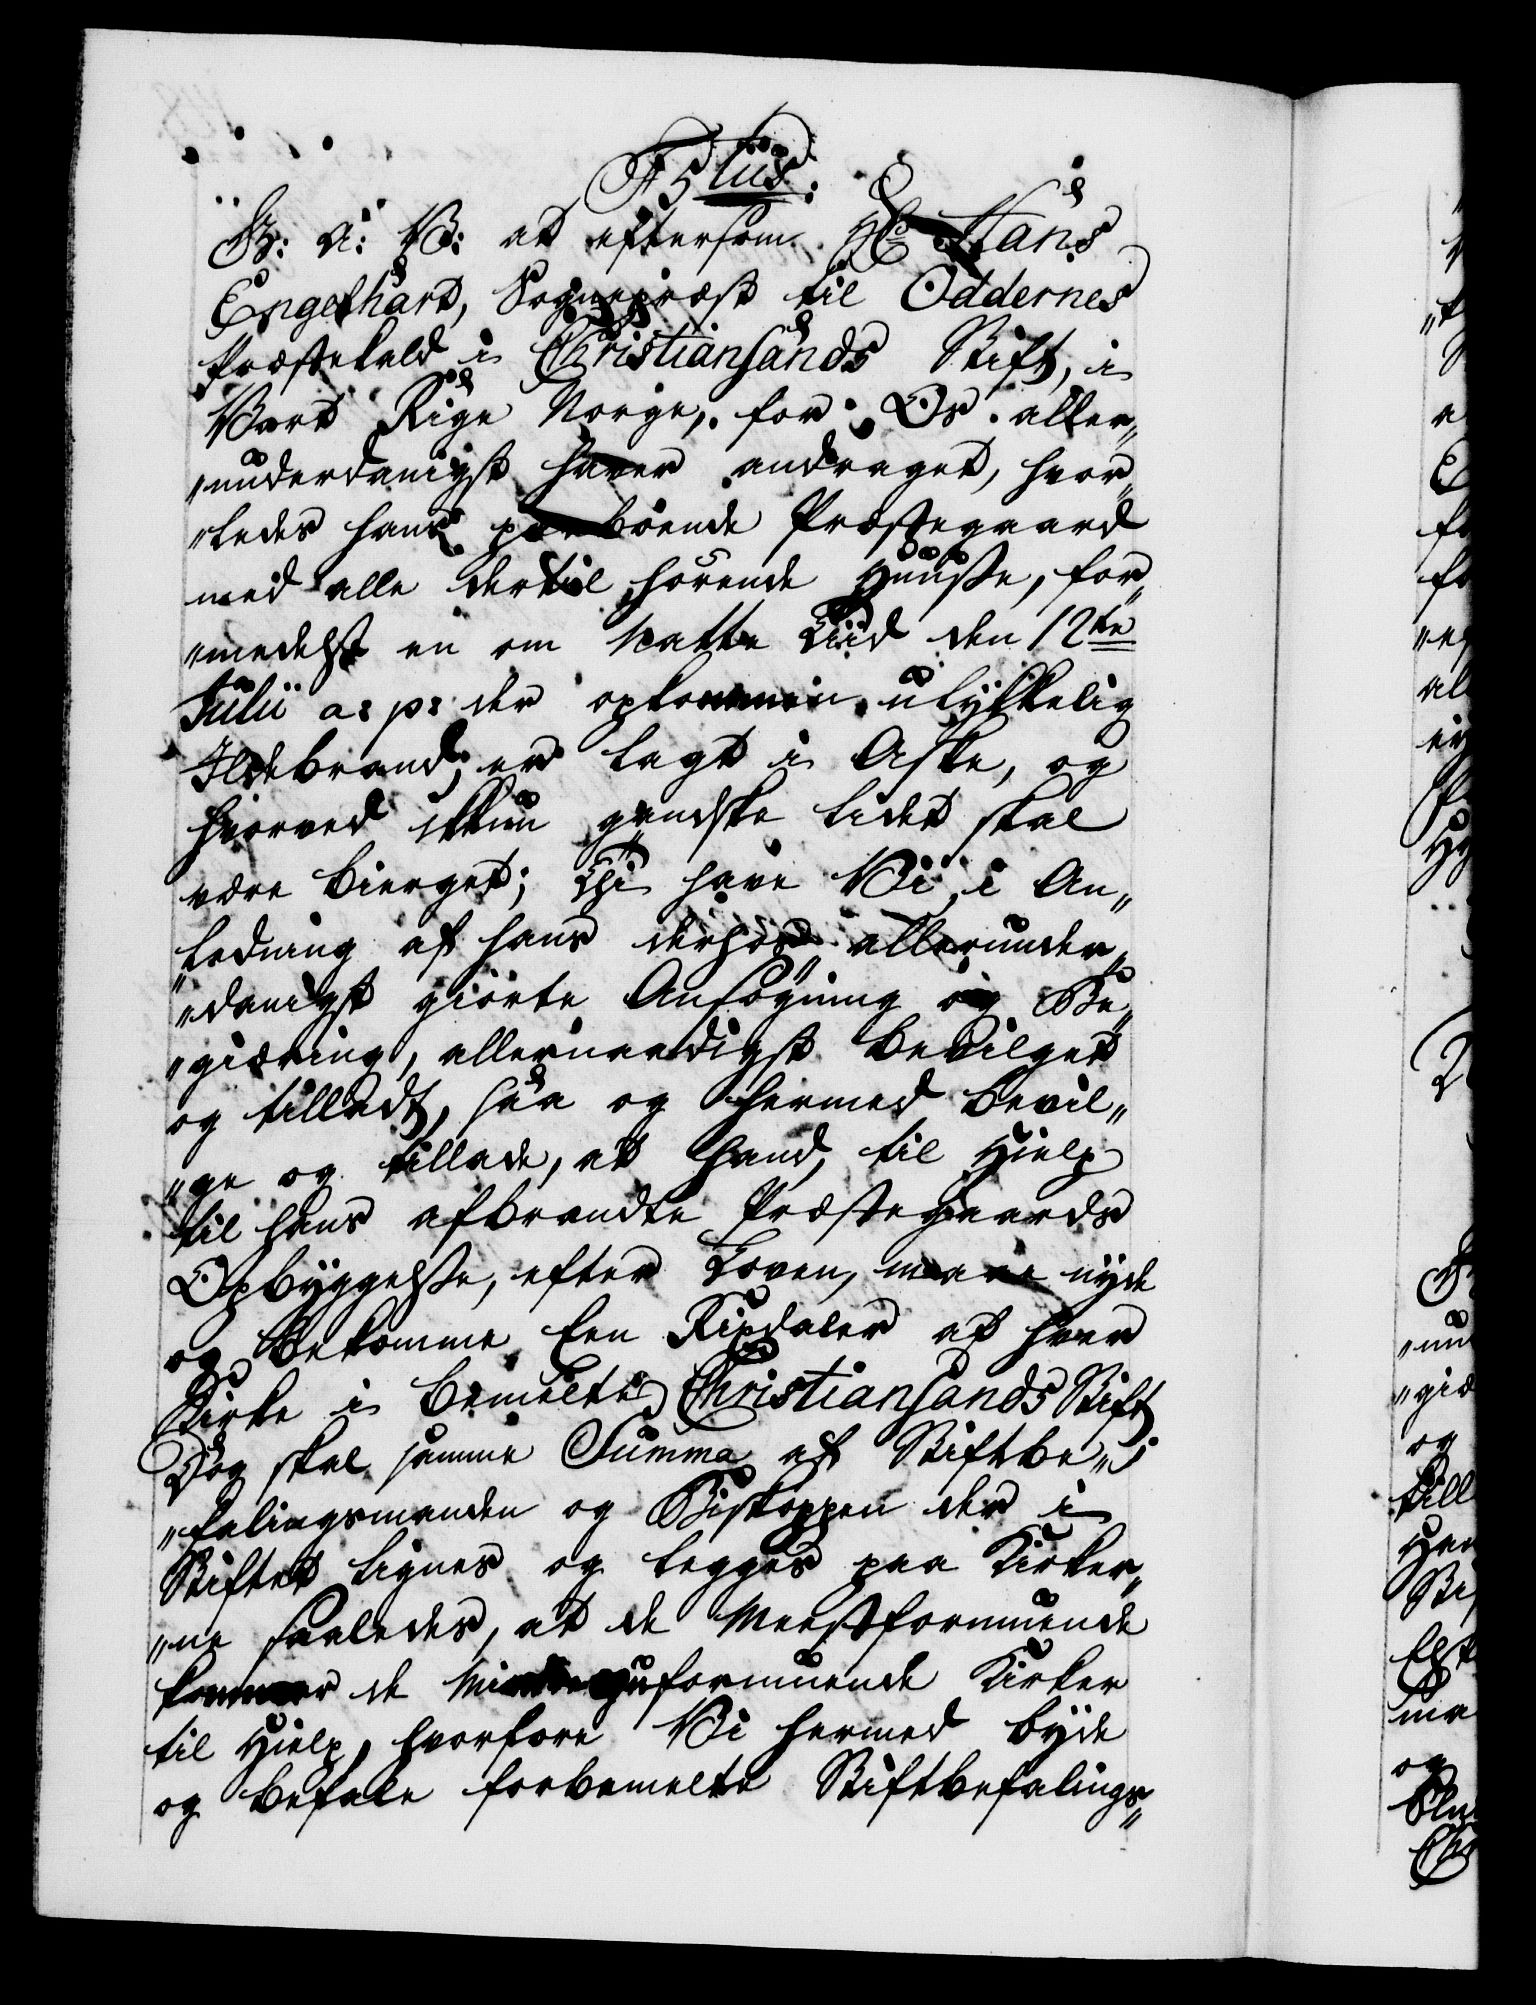 F 5 tus.
G: A: V: at eftersom Hr Hans
Engelhart, Sognepræst til Oddernes
Præstekald i Christiansands Stift, i
Vort Rige Norge, for Os aller„
„underdanigst haver andraget, hvor„
„ledes hans paaboende Præstegaard
med alle dertil hörende Huuse, for„
„medelst en om Natte Tiid den 12te
Julii a: p: der opkommen ulykkelig
Ildebrand, er lagt i Aske, og
hvorved ikkun gandske lidet skal
være bierget; Thi have Vi, i An„
„ledning af hans derhos allerunder„
„danigst giorte Ansögning og Be„
„giæring, allernaadigst bevilget
og tilladt, saa og hermed bevil„
„ge og tillade, at hand, til Hielp
til hans afbrandte Præstegaards
Opbyggelse, efter Loven, maae nyde
og bekomme Een Rixdaler af hver
Kirke i bemelte Christiansands Stift
Dog skal samme Summa af Stiftbe„
„falingsmanden og Biskoppen der i
Stiftet lignes og legges paa Kirker„
„ne saaledes, at de Meestformuende
kommer de Mindreformuende Kirker
til Hielp, hvorfore Vi hermed byde
og befale forbemelte Stiftbefalings„